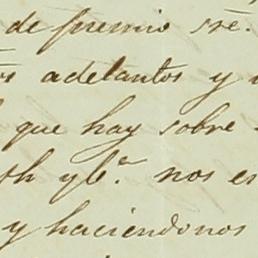 de premio sre.
os adelantos y
que hay sobre
th y Ca. nos es
y haciendonos